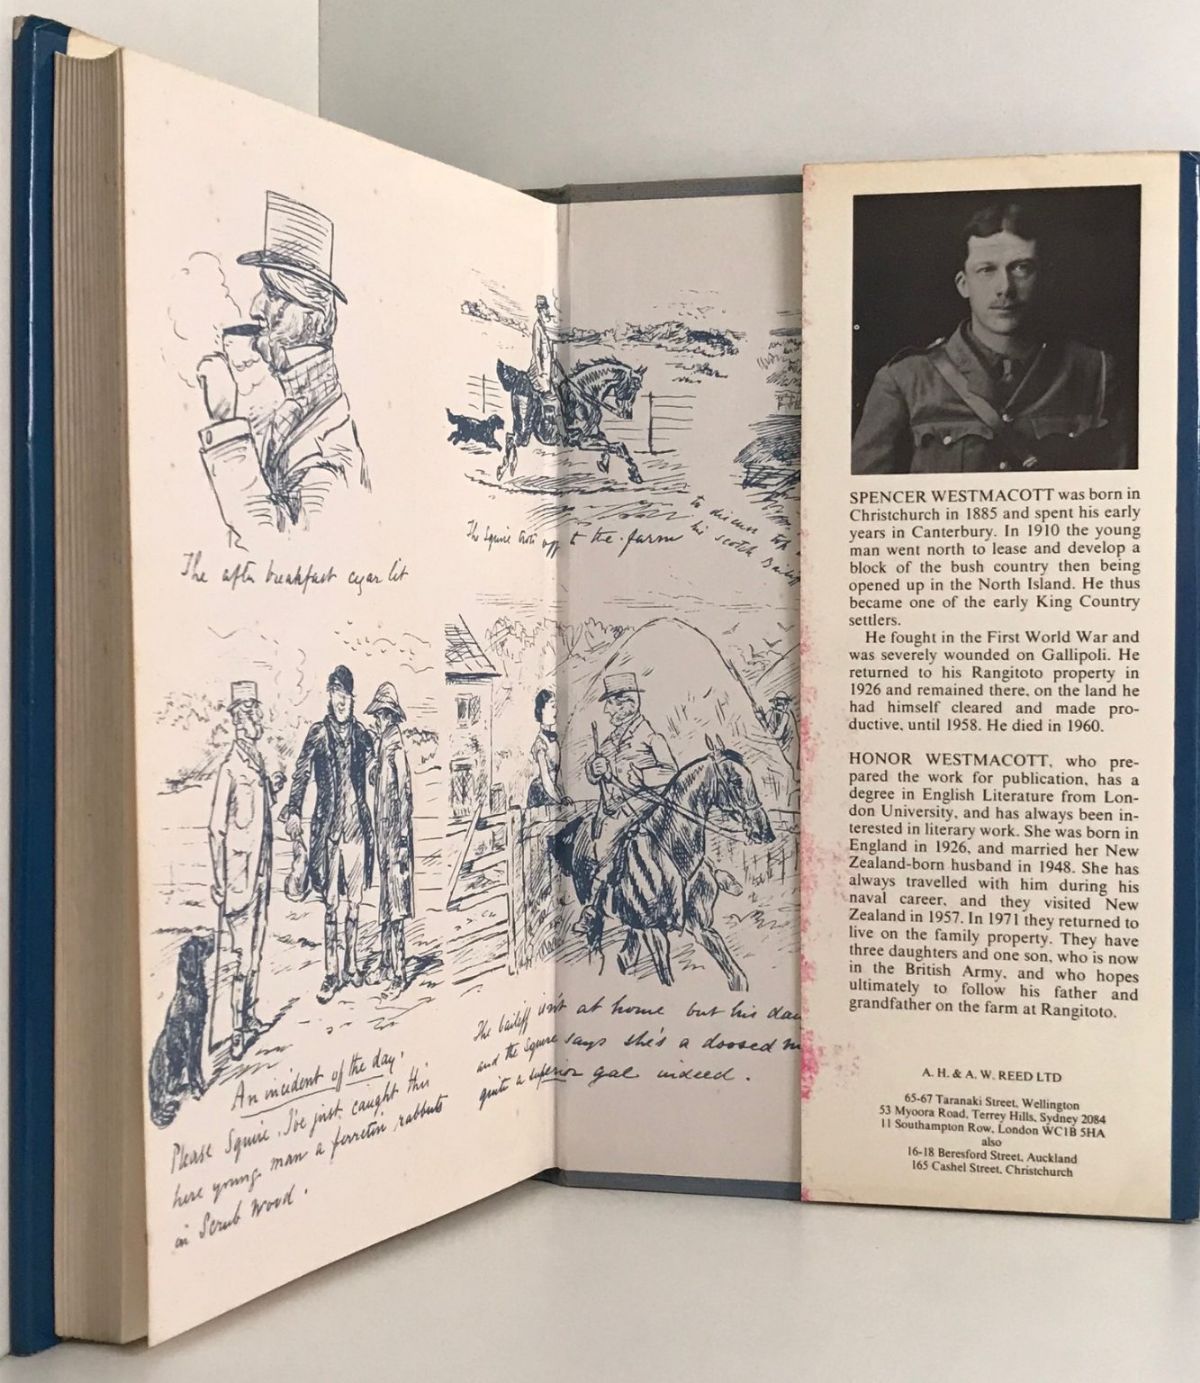 The after breakfast cigar lit
The Squire trots off to the farm
to discuss
his Scotch Bailiff
An incident of the day.
Please Squire, I've just caught this
here young man a ferretin' rabbuts
in Scrub Wood.
The bailiff isn't at home but his
and the Squire says she's a doosed
quite a superior gal indeed.
SPENCER WESTMACOTT was born in
Christchurch in 1885 and spent his early
years in Canterbury. In 1910 the young
man went north to lease and develop a
block of the bush country then being
opened up in the North Island. He thus
became one of the early King Country
settlers.
He fought in the First World War and
was severely wounded on Gallipoli. He
returned to his Rangitoto property in
1926 and remained there, on the land he
had himself cleared and made pro-
ductive, until 1958. He died in 1960.
HONOR WESTMACOTT, who pre-
pared the work for publication, has a
degree in English Literature from Lon-
don University, and has always been in-
terested in literary work. She was born in
England in 1926, and married her New
Zealand-born husband in 1948. She has
always travelled with him during his
naval career, and they visited New
Zealand in 1957. In 1971 they returned to
live on the family property. They have
three daughters and one son, who is now
in the British Army, and who hopes
ultimately to follow his father and
grandfather on the farm at Rangitoto.
A. H. & A. W. REED LTD
65-67 Taranaki Street, Wellington
53 Myoora Road, Terrey Hills, Sydney 2084
11 Southampton Row, London WC1B 5HA
also
16-18 Beresford Street, Auckland
165 Cashel Street, Christchurch